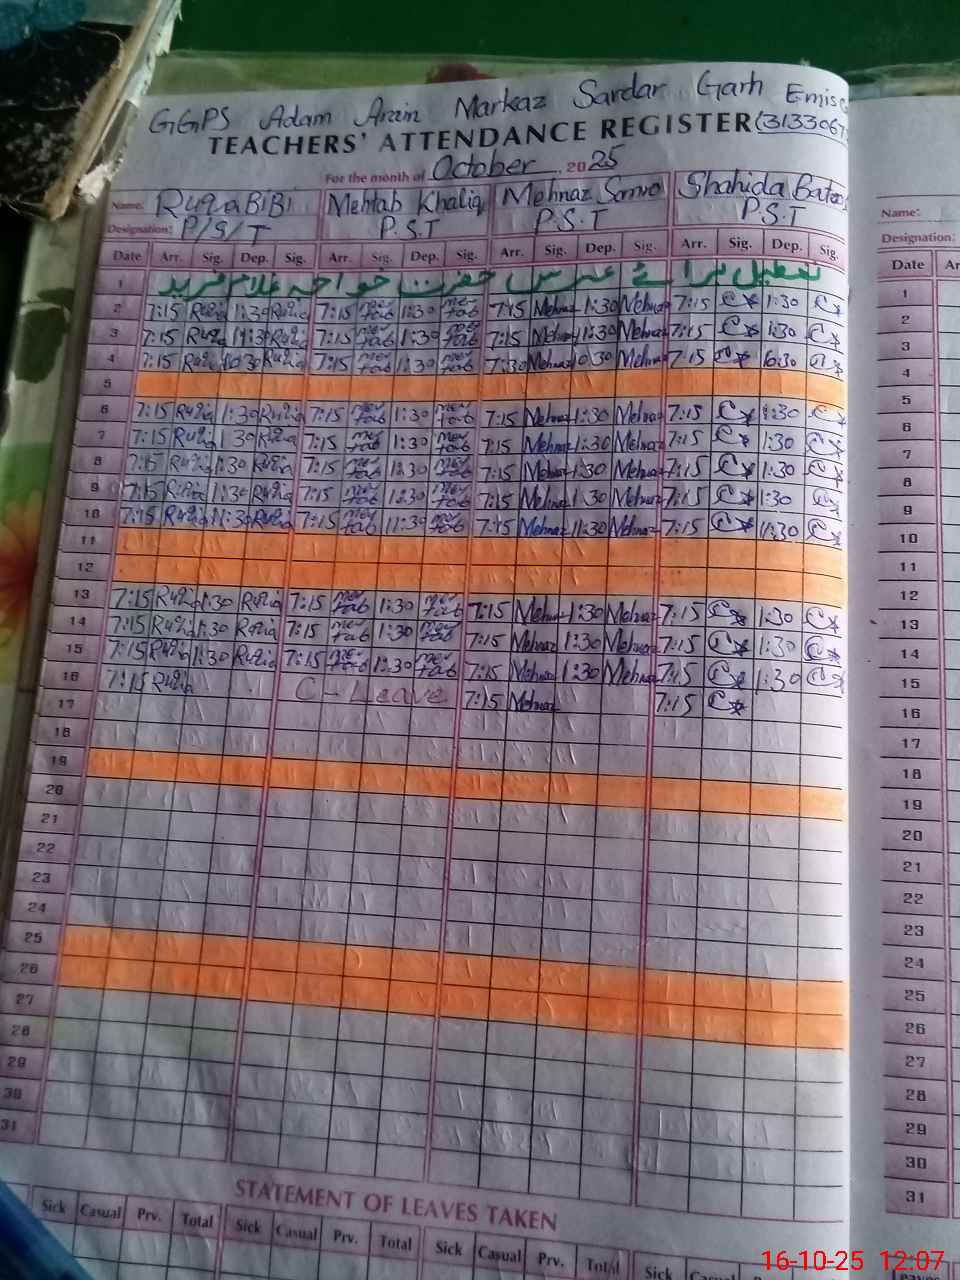 GGPS Adam Arain Markaz Sardar Garh Emis
TEACHERS' ATTENDANCE REGISTER (313306
For the month of October 2025
Name: Ruqia BiBi Mehtab Khaliq Mehnaz Shahida
Designation: P/S/T P.S.T P.S.T P.S.T
Date Arr. Sig. Dep. Sig. Arr. Sig. Dep. Sig. Arr. Sig. Dep. Sig. Arr. Sig. Dep. Sig.
1 تعطیل برائے عرس حضرت خواجہ غلام فرید
2 7:15 Ruqia 1:30 Ruqia 7:15 Meh tab 1:30 Meh tab 7:15 Mehnaz 1:30 Mehnaz 7:15 1:30
3 7:15 Ruqia 1:30 Ruqia 7:15 Meh tab 1:30 Meh tab 7:15 Mehnaz 1:30 Mehnaz 7:15 1:30
4 7:15 Ruqia Ruqia 7:15 Meh tab 1:30 Meh tab 7:30 Mehnaz Mehnaz 7:15
5
6 7:15 Ruqia 1:30 Ruqia 7:15 Meh tab 1:30 Meh tab 7:15 Mehnaz 1:30 Mehnaz 7:15 1:30
7 7:15 Ruqia 1:30 Ruqia 7:15 Meh tab 1:30 Meh tab 7:15 Mehnaz 1:30 Mehnaz 7:15 1:30
8 7:15 Ruqia 1:30 Ruqia 7:15 Meh tab 1:30 Meh tab 7:15 Mehnaz 1:30 Mehnaz 7:15 1:30
9 7:15 Ruqia 1:30 Ruqia 7:15 Meh tab 1:30 Meh tab 7:15 Mehnaz 1:30 Mehnaz 7:15 1:30
10 7:15 Ruqia 1:30 Ruqia 7:15 Meh tab 1:30 Meh tab 7:15 Mehnaz 1:30 Mehnaz 7:15 1:30
11
12
13 7:15 Ruqia 1:30 Ruqia 7:15 Meh tab 1:30 Meh tab 7:15 Mehnaz 1:30 Mehnaz 7:15 1:30
14 7:15 Ruqia 1:30 Ruqia 7:15 Meh tab 1:30 Meh tab 7:15 Mehnaz 1:30 Mehnaz 7:15 1:30
15 7:15 Ruqia 1:30 Ruqia 7:15 Meh tab 1:30 Meh tab 7:15 Mehnaz 1:30 Mehnaz 7:15 1:30
16 7:15 Ruqia C-Leave 7:15 Mehnaz 7:15
17
18
19
20
21
22
23
24
25
26
27
28
29
30
31
STATEMENT OF LEAVES TAKEN
Sick Casual Prv. Total Sick Casual Prv. Total Sick Casual Prv. Total Sick Casual
Name:
Designation:
Date
1
2
3
4
5
6
7
8
9
10
11
12
13
14
15
16
17
18
19
20
21
22
23
24
25
26
27
28
29
30
31
16-10-25 12:07